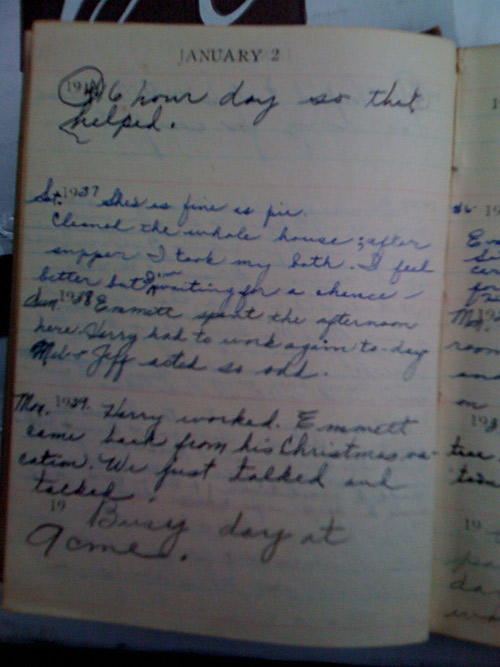 JANUARY 2
19 6 hour day so that
helped.
Sat. 1937 She's as fine as pie.
Cleaned the whole house; after
supper I took my bath. I feel
better but I'm waiting for a chance –
Sun. 1938 Emmett spent the afternoon
here. Harry had to work again to-day
Mel & Jeff acted so odd.
Mon. 1939. Harry worked. Emmett
came back from his Christmas va-
cation. We just talked and
talked!
19 Busy day at
Acme.